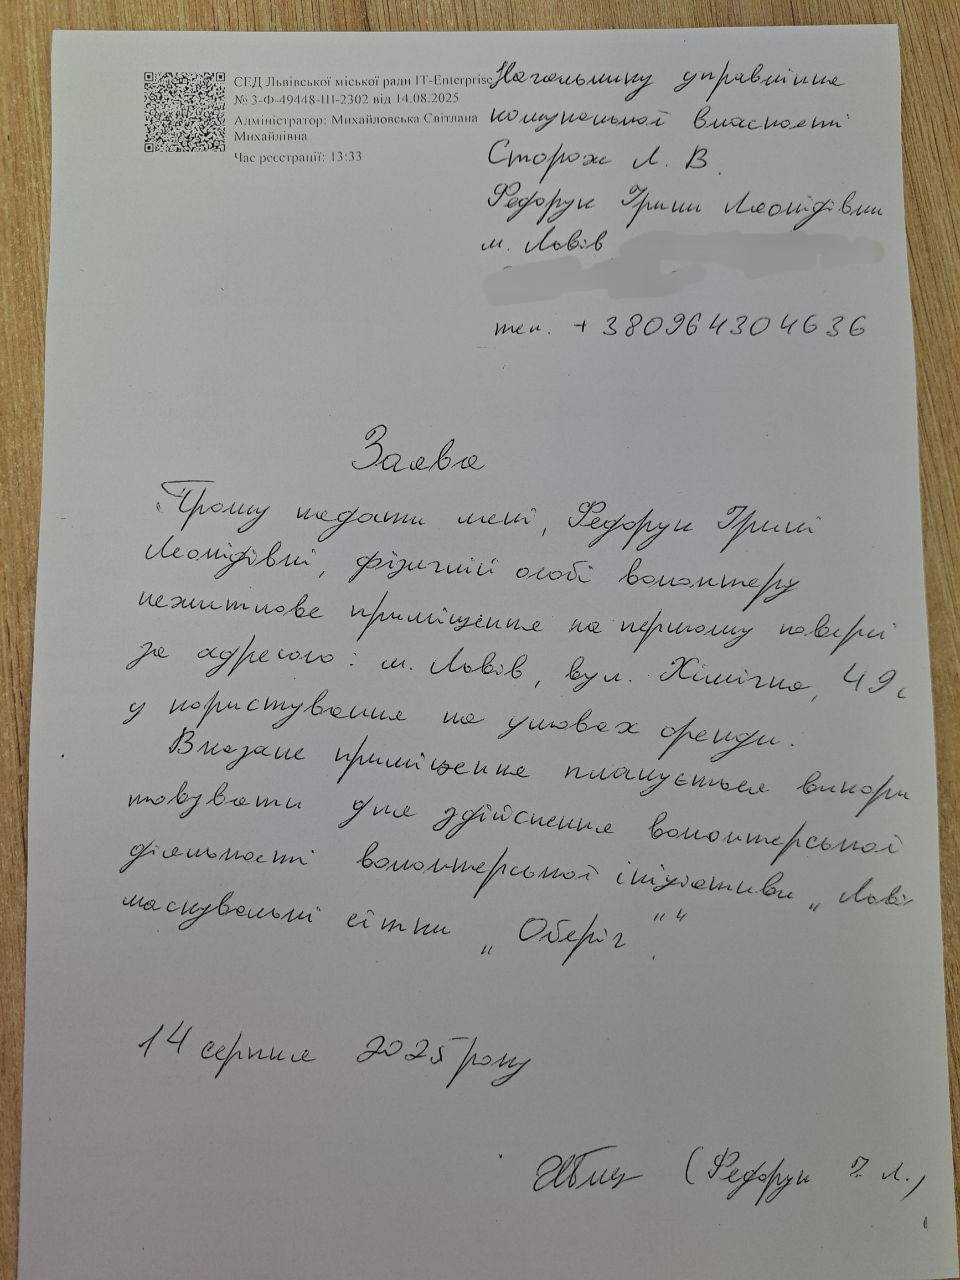 СЕД Львівської міської ради IT-Enterprise
№ 3-Ф-49448-III-2302 від 14.08.2025
Адміністратор: Михайловська Світлана
Михайлівна
Час реєстрації: 13:33
Начальнику управління
комунальної власності
Сторож Л. В.
Федорук Ірини Леонідівни
м. Львів
тел. +380964304636
Заява
Прошу надати мені, Федорук Ірині
Леонідівні, фізичній особі волонтеру
нежитлове приміщення на першому поверсі
за адресою: м. Львів, вул. Хімічна, 49,
у користування на умовах оренди.
Вказане приміщення планується викори
товувати для здійснення волонтерської
діяльності волонтерської ініціативи „Льві
маскувальні сітки „Оберіг““
14 серпня 2025 року
(Федорук І. Л.)